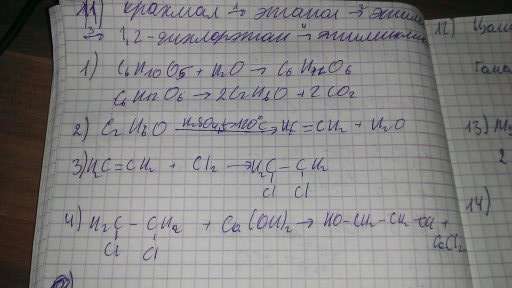 11) крахмал → этанол → этилен
3→ 1,2-дихлорэтан 4→ этиленгли
1) C6H10O5 + H2O → C6H12O6
C6H12O6 → 2C2H6O + 2CO2
2) C2H6O H2SO4, t>140°C → H2C=CH2 + H2O
3) H2C=CH2 + Cl2 → H2C-CH2
Cl Cl
4) H2C-CH2 + Ca(OH)2 → HO-CH2-CH2-OH +
Cl Cl CaCl2
12)
13)
2
14)